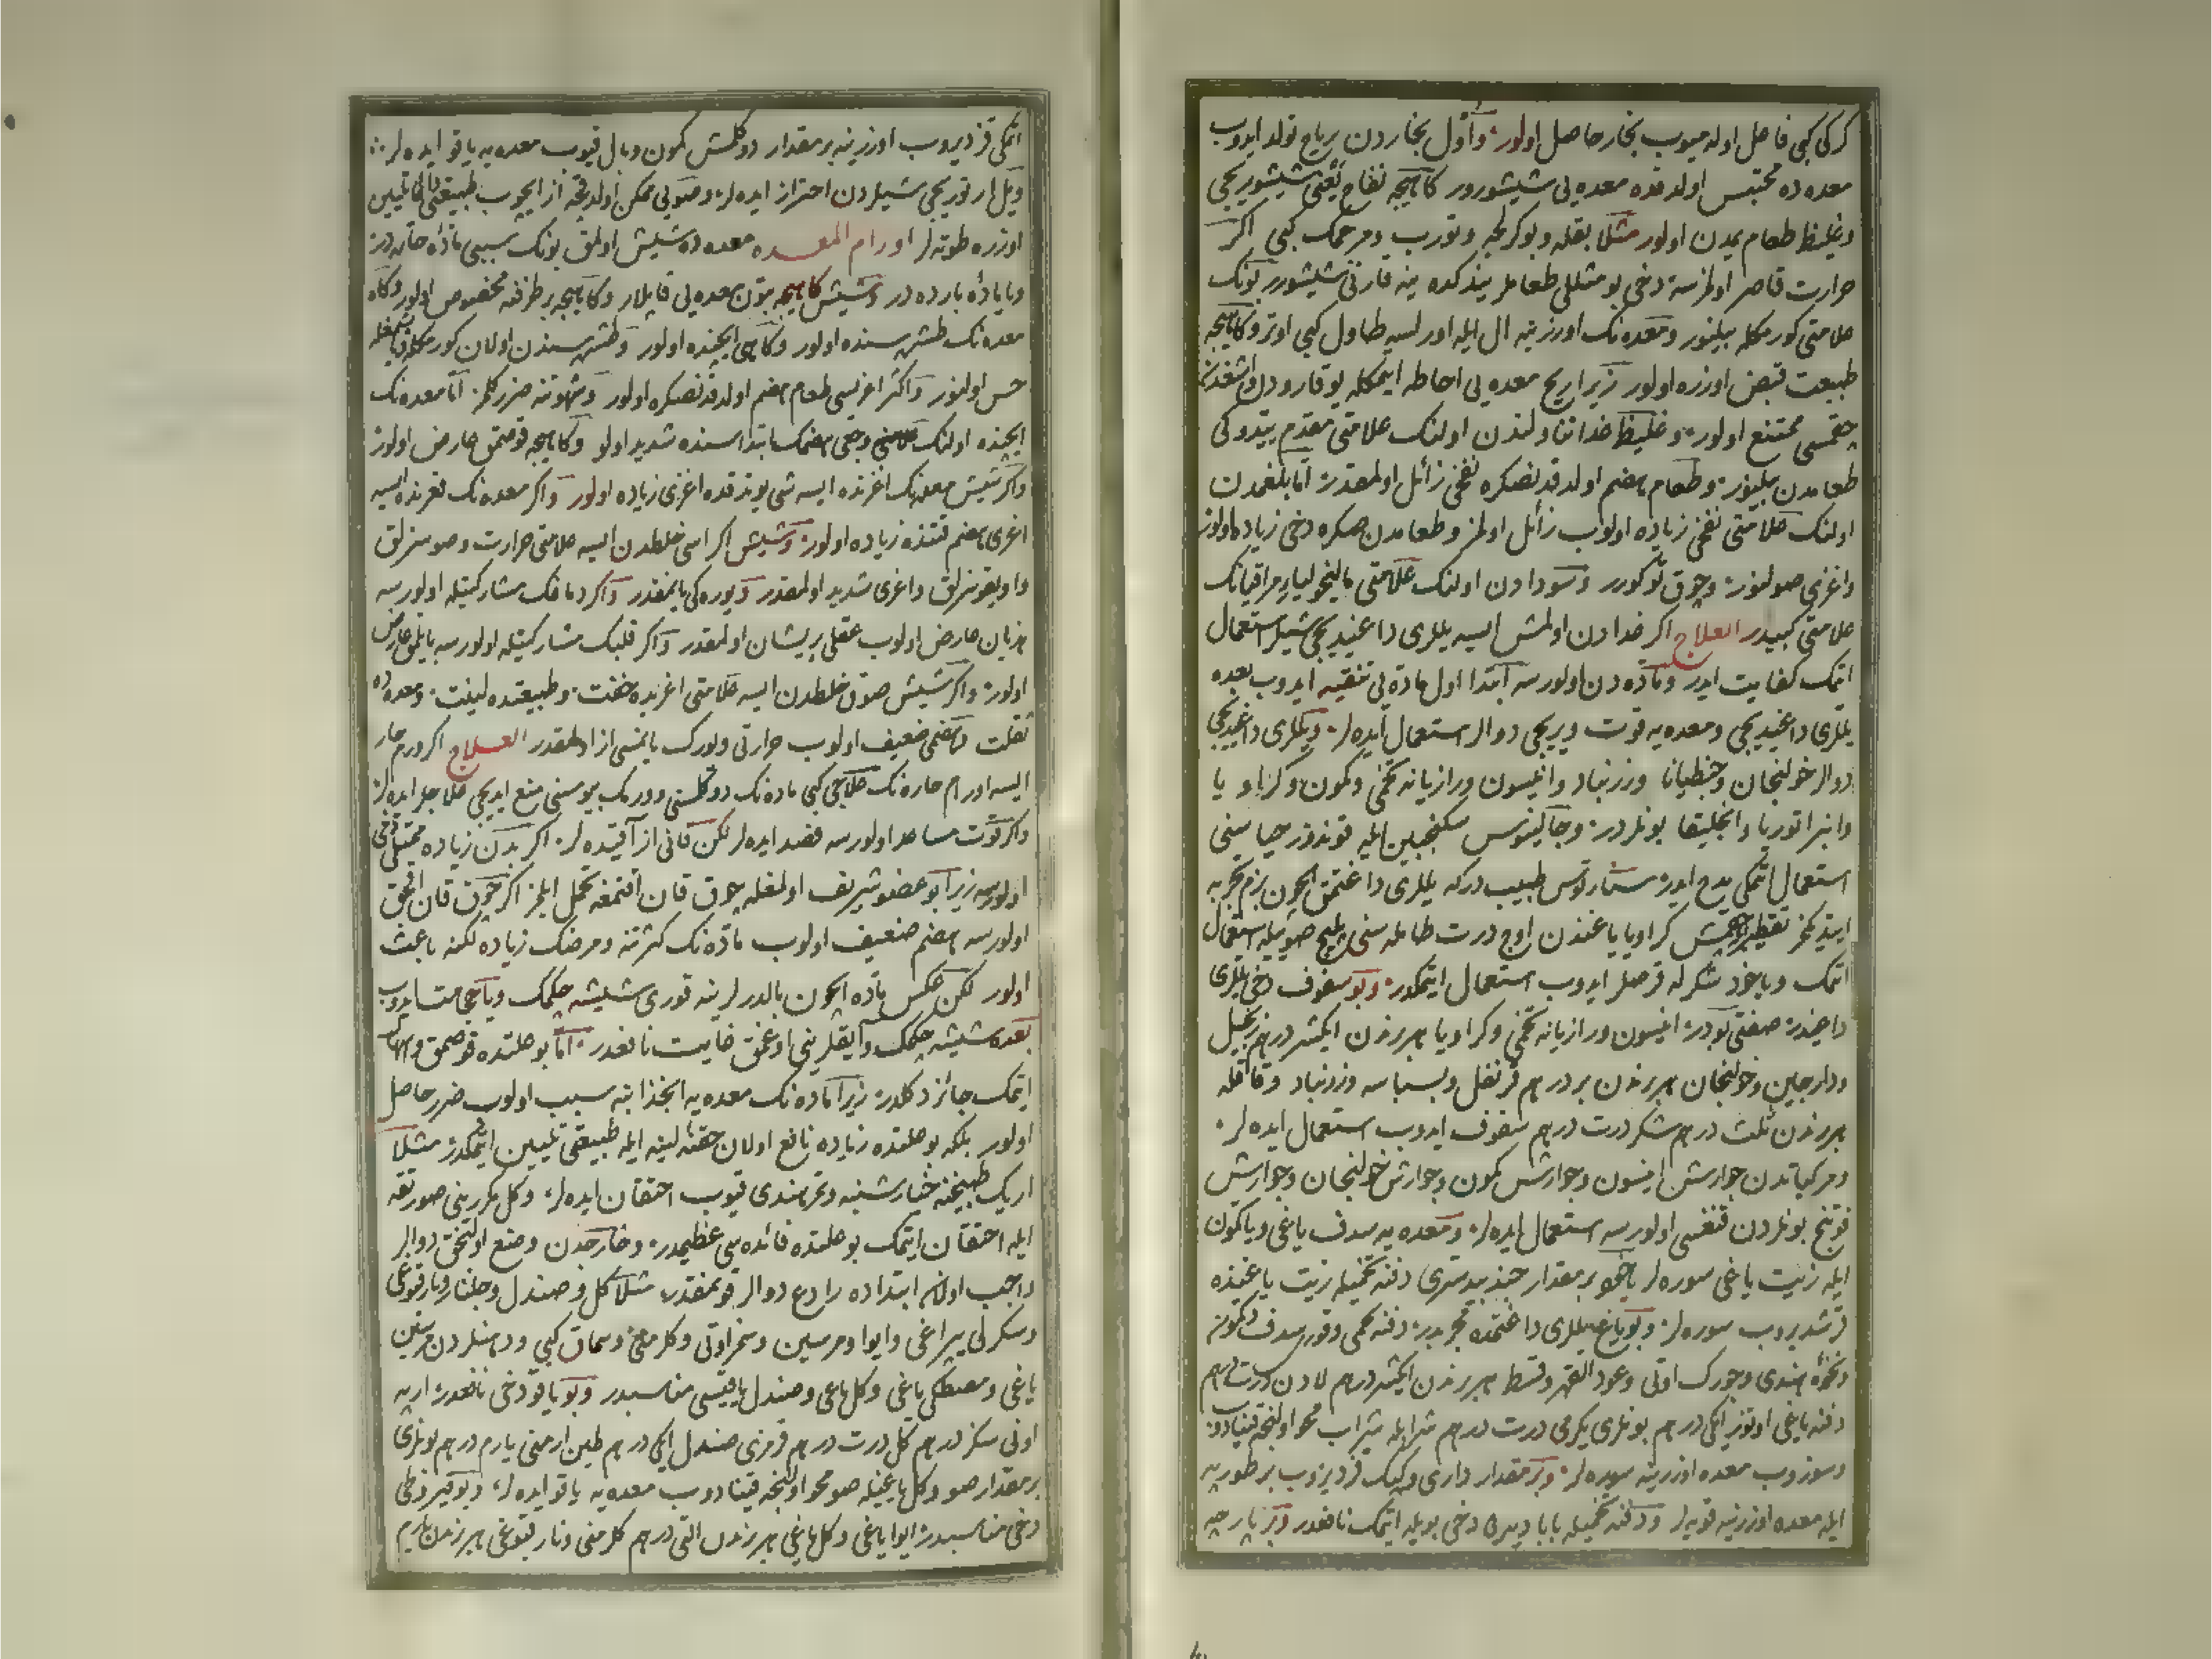 كركى كبى فاصل اوله ميوب بخار حاصل اولور و اول بخاردن رياح تولد ايدوب
معده ده محتبس اولدقده معده يى شيشورور كاهيجه نفاخ يعنى شيشوريجى
وغليظ طعام يمدن اولور مثلا بقله و بوكرلجه و تورب و مرجمك كبى اكر
حرارت قاصر اولمزسه دخى بو مثللى طعاملر يندكده ينه قارنى شيشورر بونك
علامتى كورمكله بيلنور و معده نك اوزرينه ال ايله اورلسه طاول كبى اوتر و كاهيجه
طبيعت قبض اوزره اولور زيرا ريح معده يى احاطه ايتمكله يوقارودن و اشغدن
چقمسى ممتنع اولور و غليظ غدا تناولندن اولنك علامتى مقدم ييدوكى
طعامدن بيلينور و طعام هضم اولدقدنصكره نفخى زائل اولمقدر اما بلغمدن
اولنك علامتى نفخى زياده اولوب زائل اولمز و طعامدن صكره دخى زياده اولور
و اغزى صولنور و چوق توكورر و سودادن اولنك علامتى ماليخولياء مراقيانك
علامتى كبيدر العلاج اكر غدادن اولمش ايسه يللرى داغيديجى شيلر استعمال
اتمك كفايت ايدر و ماده دن اولورسه ابتدا اول ماده يى تنقيه ايدوب بعده
يللرى داغيديجى و معده يه قوت ويريجى دوالر استعمال ايده لر و يللرى داغيديجى
دوالر خولنجان و جنطيانا و زرنباد و انيسون و رازيانه تخمى و كمون و كراويا
و انبراتوريا و انجليقا بونلردر و جالينوس سكنجبين ايله قوندز حياسنى
استعمال اتمكى مدح ايدر طبيب دركه يللرى داغتمق ايچون بزم تجربه
ايتديكمز تقطير اولنمش كراويا ياغندن اوچ درت طامله سنى صوييله استعمال
اتمك و ياخود شكرله قرصلر ايدوب استعمال ايتمكدر و بو سفوف دخى يللرى
داغيدر صفتى بودر انيسون و رازيانه تخمى و كراويا هر برندن ايكيشر درهم زنجبيل
و دارچين و خولنجان هر برندن بر درهم قرنفل و بسباسه و زرنباد و قاقله
هر برندن ثلث درهم شكر درت درهم سفوف ايدوب استعمال ايده لر
و مركباتدن جوارش انيسون و جوارش كمون و جوارش خولنجان و جوارش
فوتنج بونلردن قنغسى اولورسه استعمال ايده لر و معده يه سدف ياغى و ياكمون
ايله زيت ياغى سوره لر ياخود بر مقدار جندبيدسترى دفنه تخميله زيت ياغنده
قرشديروب سوره لر و بو ياغ يللرى داغتمده مجربدر دفنه تخمى و قورى سدف و كمون
و نخوه هندى و چورك اوتى و عود القهر و قسط هر برندن ايكيشر درهم لادن درت درهم
دفنه ياغى اوتوز ايكى درهم بونلرى يكرمى درت درهم شراب ايله شراب محو اولنجه قينادوب
و سوزوب معده اوزرينه سوره لر و بر مقدار دارى و كپك قزديروب بر طوربه
ايله معده اوزرينه قويه لر و دفنه تخميله بابا ديه دن دخى بويله ايتمك نافعدر و بر پارچه
اتمكى قزديروب اوزرينه بر مقدار دوكلمش كمون و بال قيوب معده يه ياقو ايده لر
و يل ارتوريجى شيلردن احتراز ايده لر و صويى ممكن اولدقجه از ايچوب طبيعتى دائما تليين
اوزره طوته لر اورام المعده معده ده شيش اولمق بونك سببى ماده حاره در
و يا ماده بارده در و شيش كاهيجه بتون معده يى قاپلار و كاهيجه بر طرفنه مخصوص اولور و كاه
معده نك طشره سنده اولور و كاهى ايچنده اولور و طشره سندن اولان كورمكله و يا
حس اولنور و اكثر اغريسى طعام هضم اولدقدنصكره اولور و شهوتنه ضرر كلمز اما معده نك
ايچنده اولنك علامتى وجعى هضمك ابتداسنده شديد اولور و كاهيجه قوصمق عارض اولور
و اكر شيش معده نك اغزنده ايسه شى يوندقده اغرى زياده اولور و اكر معده نك قعرنده ايسه
اغرى هضم وقتنده زياده اولور و شيش اكر اسى خلطدن ايسه علامتى حرارت و صوسزلق
و اويقوسزلق و اغرى شديد اولمقدر و يوره كى بايلمقدر و اكر دماغك مشاركتيله اولورسه
هذيان عارض اولوب عقلى پريشان اولمقدر و اكر قلبك مشاركتيله اولورسه بايلمق عارض
اولور و اكر شيش صوق خلطدن ايسه علامتى اغريده خفت و طبيعتده لينت و معده ده
ثقلت و هضمى ضعيف اولوب حرارتى و يورك يانمسى از اولمقدر العلاج اكر ورم حار
ايسه اورام حاره نك علاجى كبى ماده نك دوكلسنى و ورمك بيومسنى منع ايديجى علاجلر ايده لر
و اكر قوت مساعد اولورسه فصد ايده لر لكن قانى از آقيده لر اكر بدن زياده ممتلى دخى
اولورسه زيرا بو عضو شريف اولمغله چوق قان اقتمغه تحمل ايلمز اكر چوق قان المق
اولورسه هضم ضعيف اولوب ماده نك كثرتنه و مرضك زياده لكنه باعث
اولور لكن عكس ماده ايچون بالدرلرينه قورى شيشه چكمك و ياحجامت ايدوب
بعده شيشه چكمك و آيقلرينى اوغمق غايت نافعدر اما بو علتده قوصمق و اسهال
ايتمك جائز دكلدر زيرا ماده نك معده يه انجذابنه سبب اولوب ضرر حاصل
اولور بلكه بو علتده زياده نافع اولان حقنه لينه ايله طبيعتى تليين ايتمكدر مثلا
اريك طبيخنه خيارشنبه و تمرهندى قيوب احتقان ايده لر و كل مكررينى صو قتنه
ايله احتقان ايتمك بو علتده فائده سى عظيمدر و خارجدن وضع اولنجق دوالر
واجب اولان ابتداده رادع دوالر قومقدر مثلا كل و صندل و جلنار و نار قبوغى
و سكرلى يپراغى و ايوا و مرسين و سخراوتى و كلرمنى و سماق كبى و دهنلردن مرسين
ياغى و مصطكى ياغى و كل ياغى و صندل ياقيسى مناسبدر و بو ياقو دخى نافعدر ارپه
اونى سكز درهم كل درت درهم قرمزى صندل ايكى درهم طين ارمنى يارم درهم بونلرى
بر مقدار صو و كل ياغيله صو محو اولنجه قينادوب معده يه ياقو ايده لر و بو قيروطى
دخى مناسبدر ايوا ياغى و كل ياغى هر برندن التى درهم كلرمنى و نار قبوغى هر برندن يارم